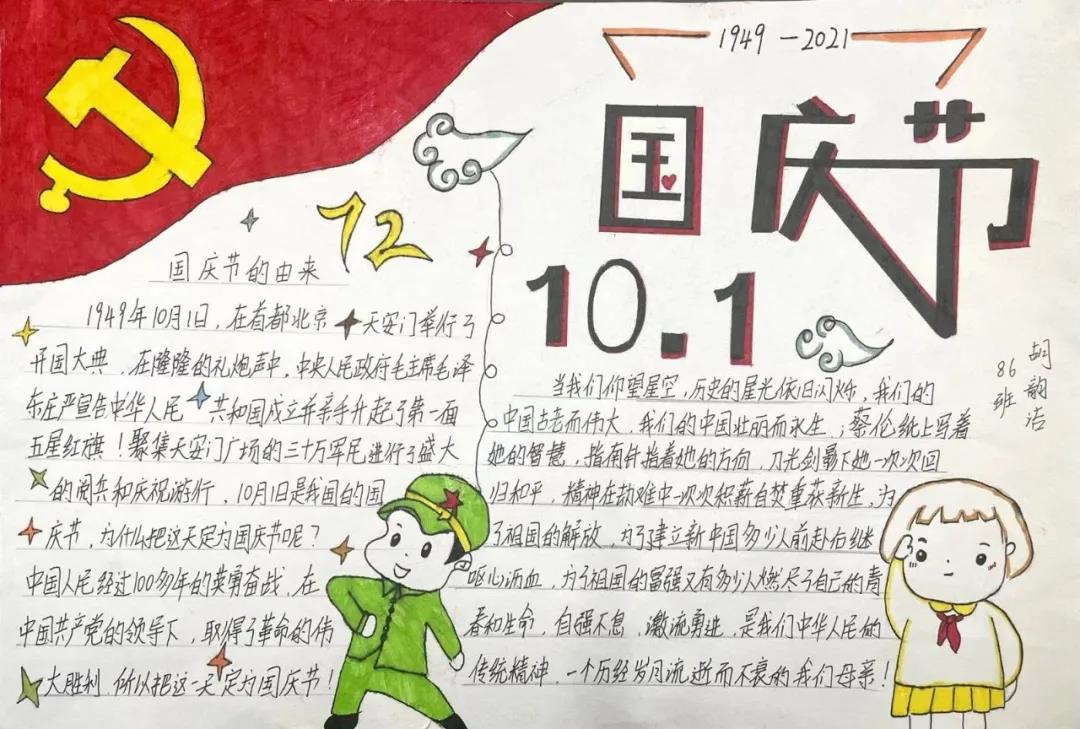 1949-2021
国庆节
10.1
72
国庆节的由来
1949年10月1日，在首都北京天安门举行了
开国大典，在隆隆的礼炮声中，中央人民政府毛主席毛泽
东庄严宣告中华人民共和国成立并亲手升起了第一面
五星红旗！聚集天安门广场的三十万军民进行了盛大
的阅兵和庆祝游行，10月1日是我国的国
庆节，为什么把这天定为国庆节呢？
中国人民经过100多年的英勇奋战，在
中国共产党的领导下，取得了革命的伟
大胜利，所以把这一天定为国庆节！
当我们仰望星空，历史的星光依旧闪烁，我们的
中国古老而伟大，我们的中国壮丽而永生；蔡伦纸上写着
她的智慧，指南针指着她的方向，刀光剑影下她一次次回
归和平，精神在劫难中一次次积薪自焚重获新生，为
了祖国的解放，为了建立新中国多少人前赴后继
呕心沥血，为了祖国的富强又有多少人燃尽了自己的青
春和生命，自强不息，激流勇进，是我们中华人民的
传统精神，一个历经岁月流逝而不衰的我们母亲！
86班
胡韵洁